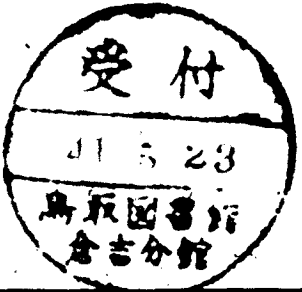 受付
41 5 23
鳥取図書館
倉吉分館